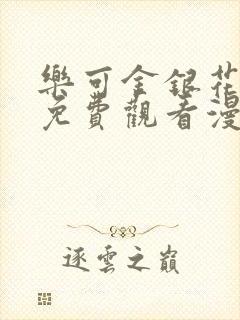 樂可金銀花
免費觀看漫
逐雲之巔